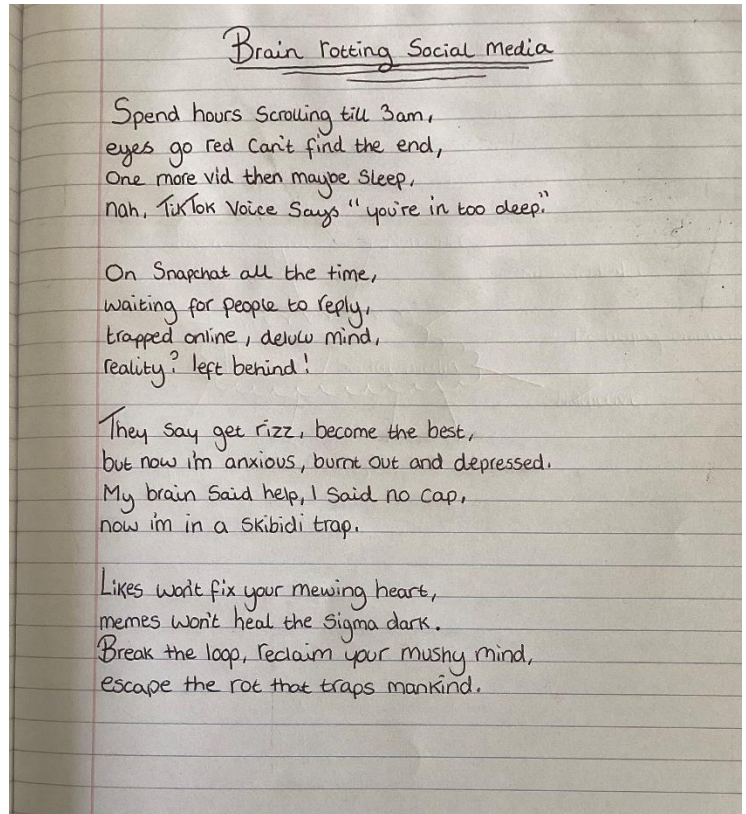 Brain rotting Social media
Spend hours Scrolling till 3am,
eyes go red Can't find the end,
One more vid then maybe Sleep,
nah, TikTok Voice Says "you're in too deep."
On Snapchat all the time,
waiting for people to reply,
trapped online, delulu mind,
reality? left behind!
They say get rizz, become the best,
but now i'm anxious, burnt out and depressed.
My brain Said help, I Said no cap,
now i'm in a Skibidi trap.
Likes won't fix your mewing heart,
memes won't heal the Sigma dark.
Break the loop, reclaim your mushy mind,
escape the rot that traps mankind.